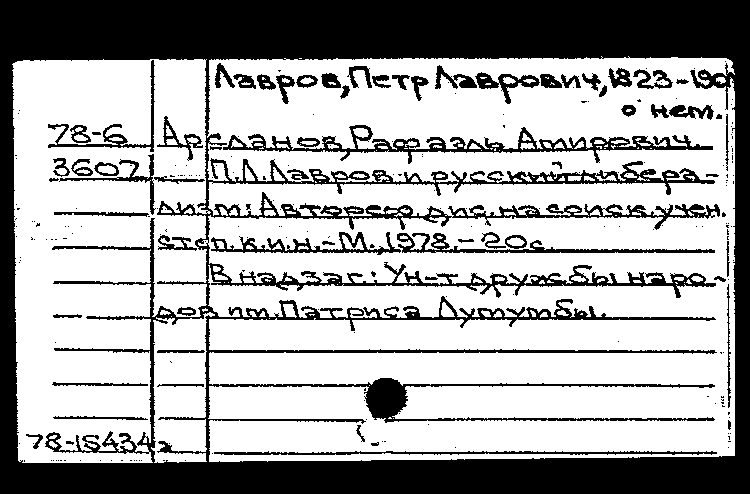 Лавров, Петр Лаврович, 1823-190
о нем.
78-6 Арсланов, Рафаэль Амирович.
3607 П.Л.Лавров и русский либера-
лизм: Автореф. дис. на соиск. учен.
степ. к.и.н. - М., 1978. - 20с.
В надзаг.: Ун-т дружбы наро-
дов им. Патриса Лумумбы.
78-15434а